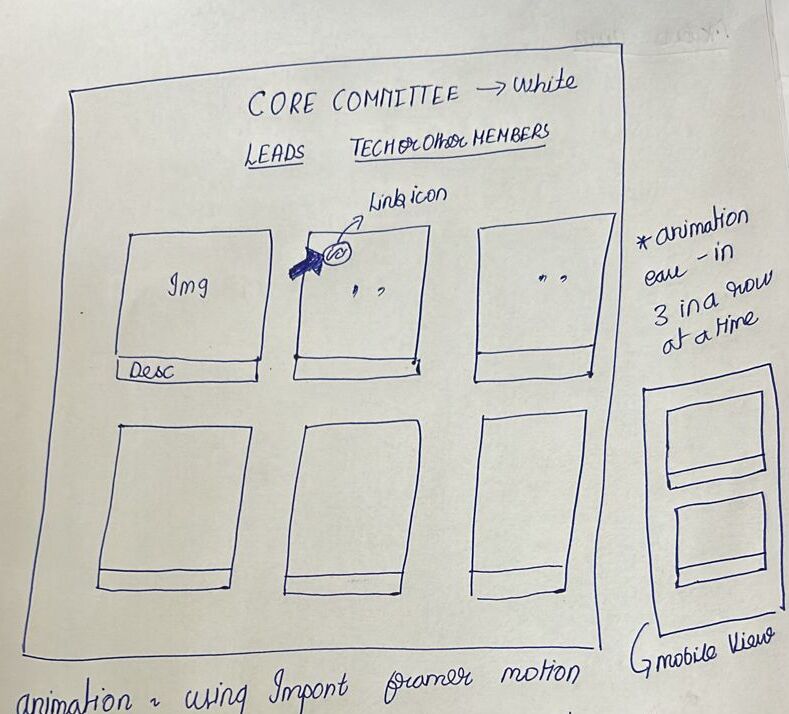 CORE COMMITTEE → White
LEADS TECH or Other MEMBERS
Link icon
Img
" "
" "
Desc
* animation
ease - in
3 in a row
at a time
mobile View
animation ~ using Import framer motion